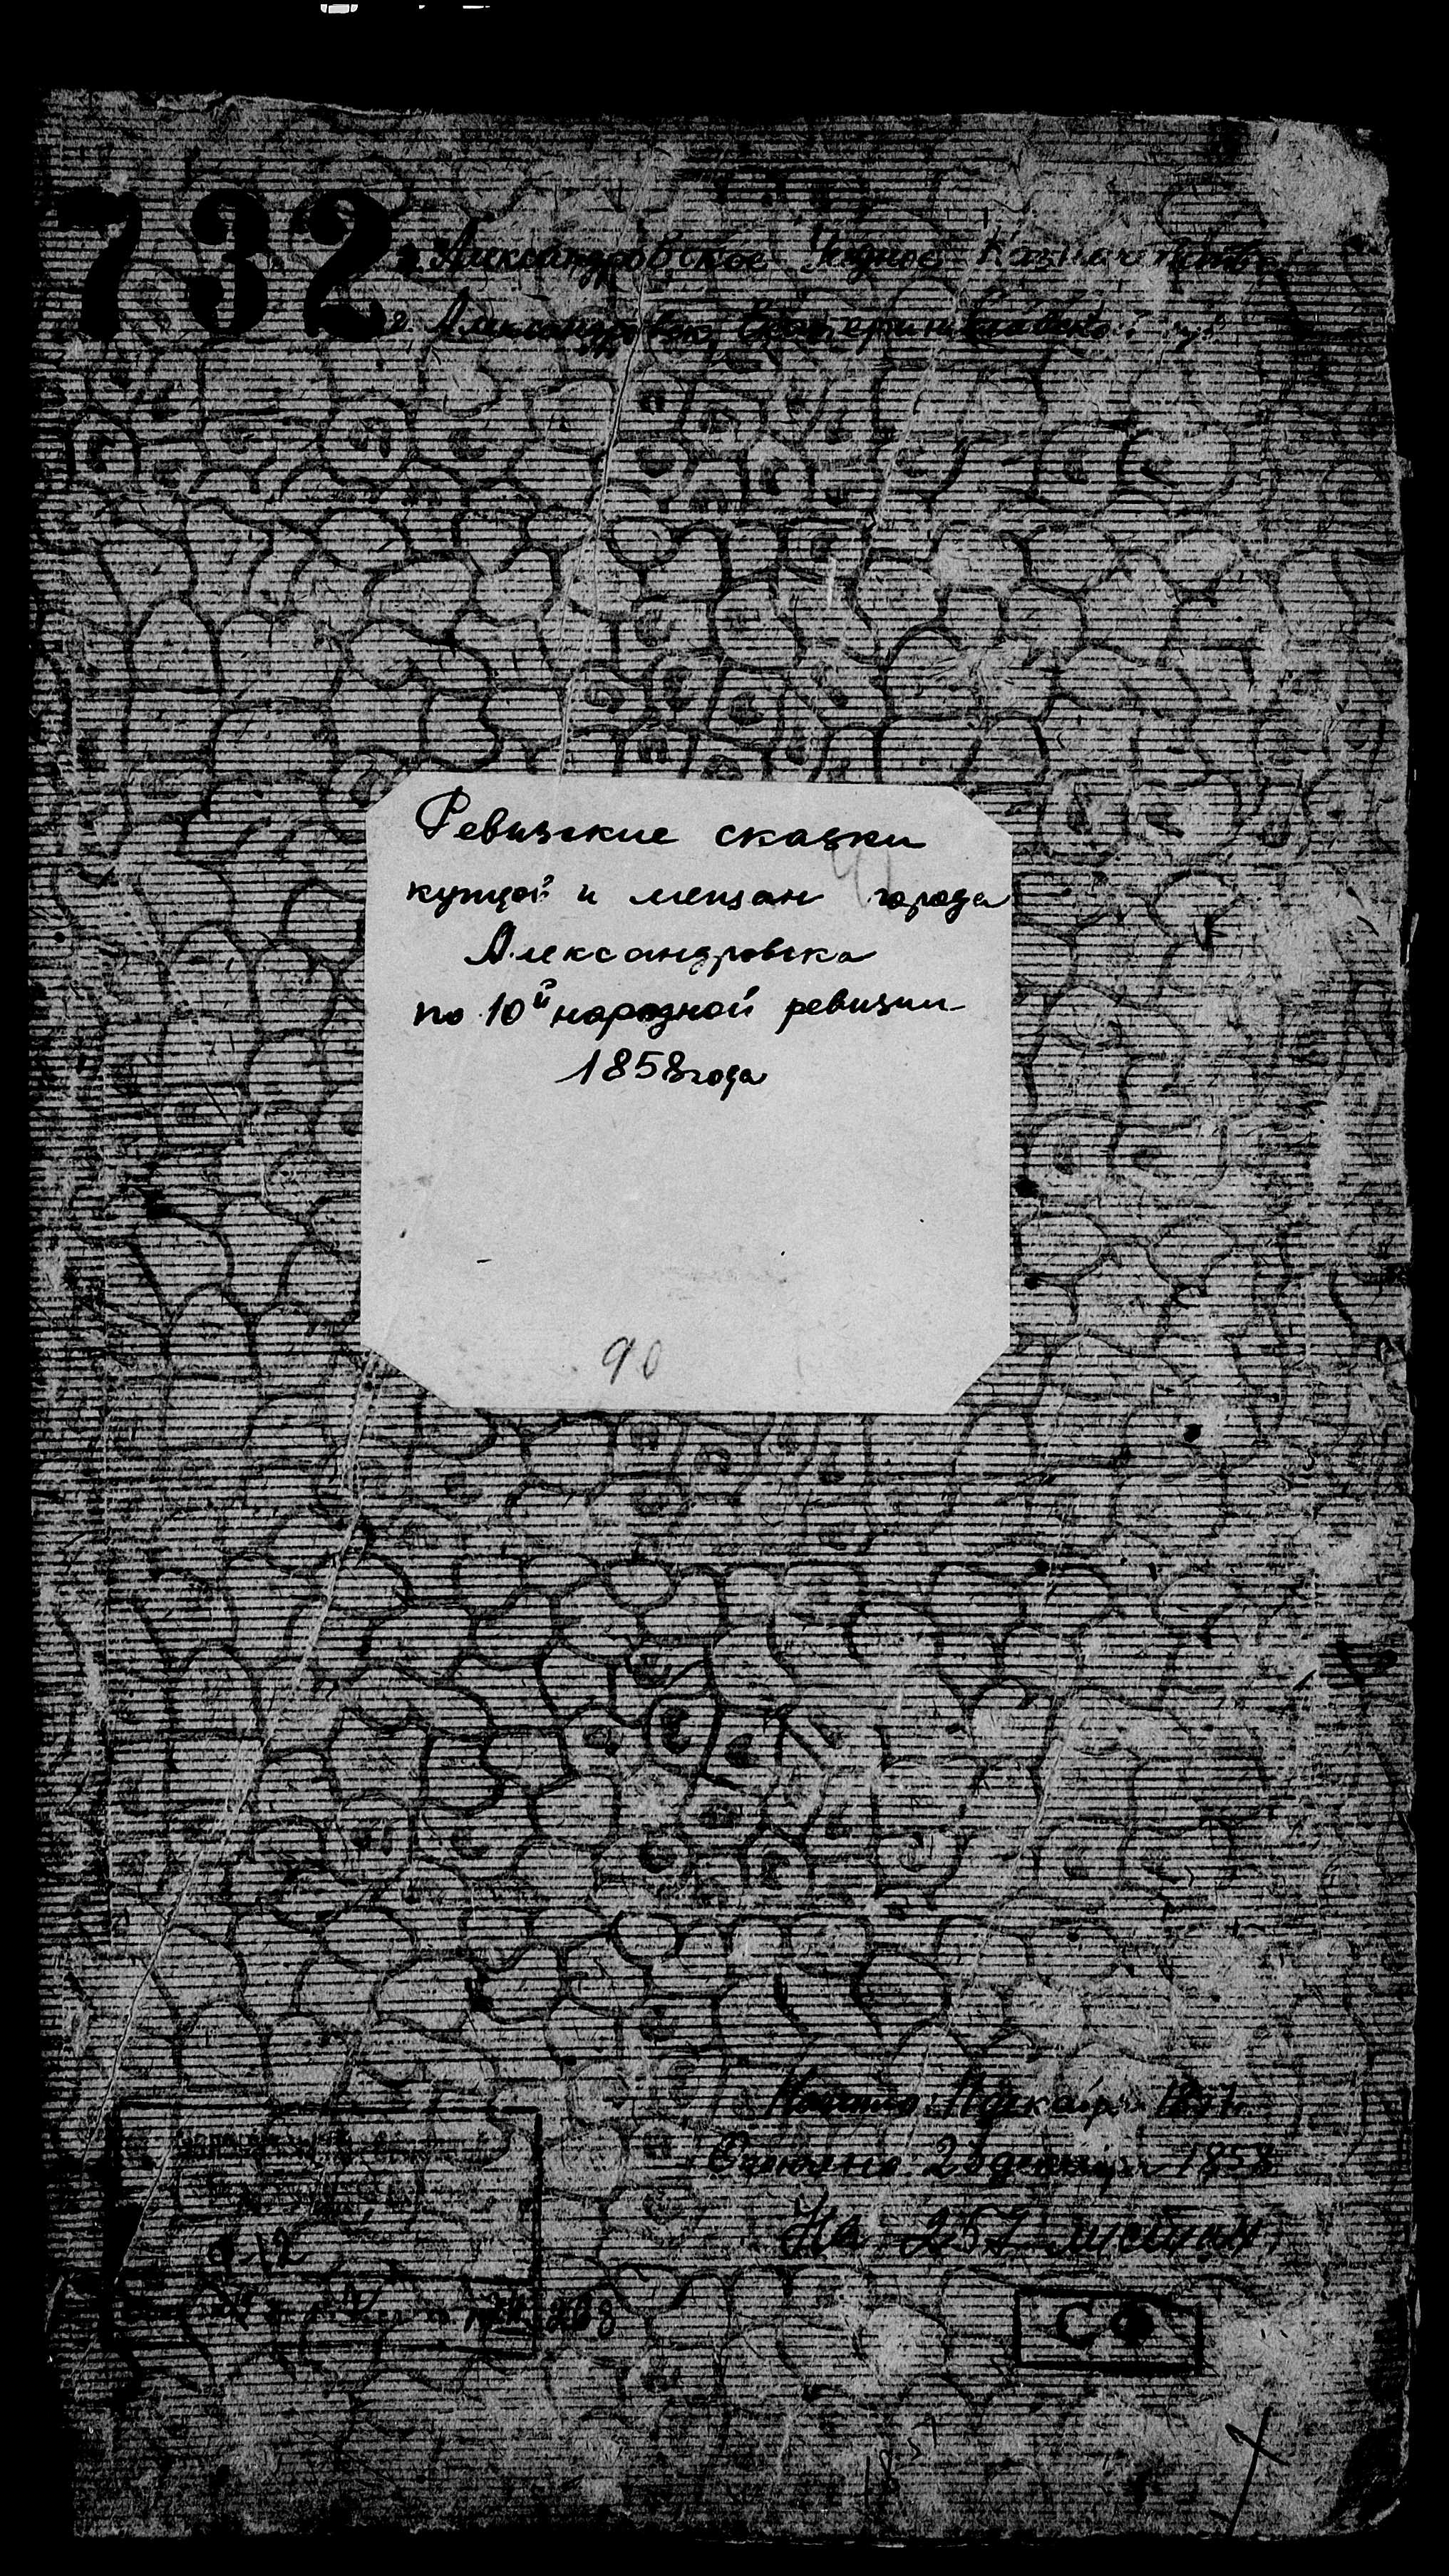 732
Александровское Уездное Казначейство
г. Александровск, Екатеринославской губ.
Ревизские сказки
купцов и мещан города
Александровска
по 10й народной ревизии
1858 года
90
Начато: 1857
Окончено: 25 декабря 1858
На 257 листах
СФ